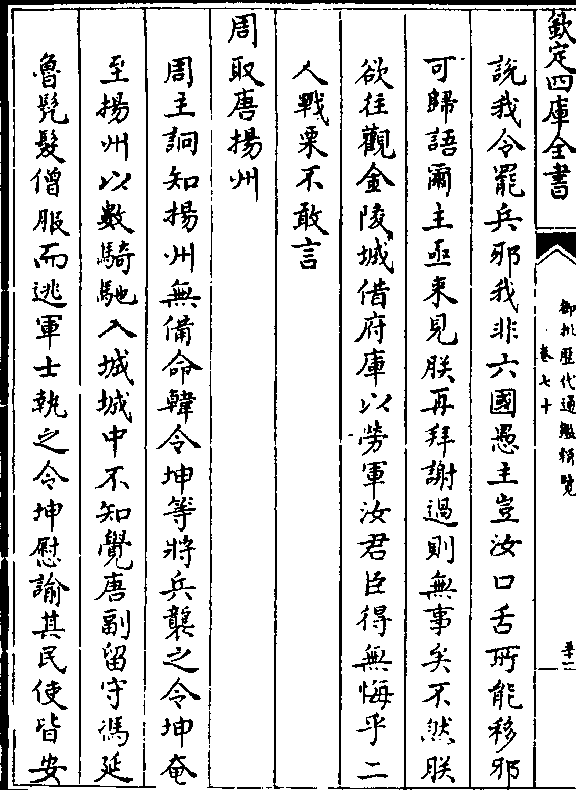 欽定四庫全書
御批歴代通鑑輯覽
卷七十
説我令罷兵邪我非六國愚主豈汝口舌所能移邪
可歸語爾主亟来見朕再拜謝過則無事矣不然朕
欲往觀金陵城借府庫以勞軍汝君臣得無悔乎二
人戰栗不敢言
周取唐揚州
周主詗知揚州無備命韓令坤等將兵襲之令坤奄
至揚州以數騎馳入城城中不知覺唐副留守馮延
魯髠髮僧服而逃軍士執之令坤慰諭其民使皆安